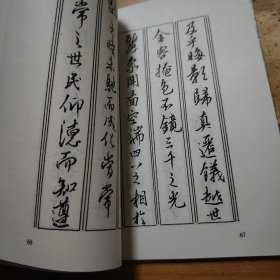 未馳而成化當常
常之世民仰德而知遵
66
及乎晦影歸真遷儀越世
金容掩色不鏡三千之光
麗象開圖空端四八之相於
67